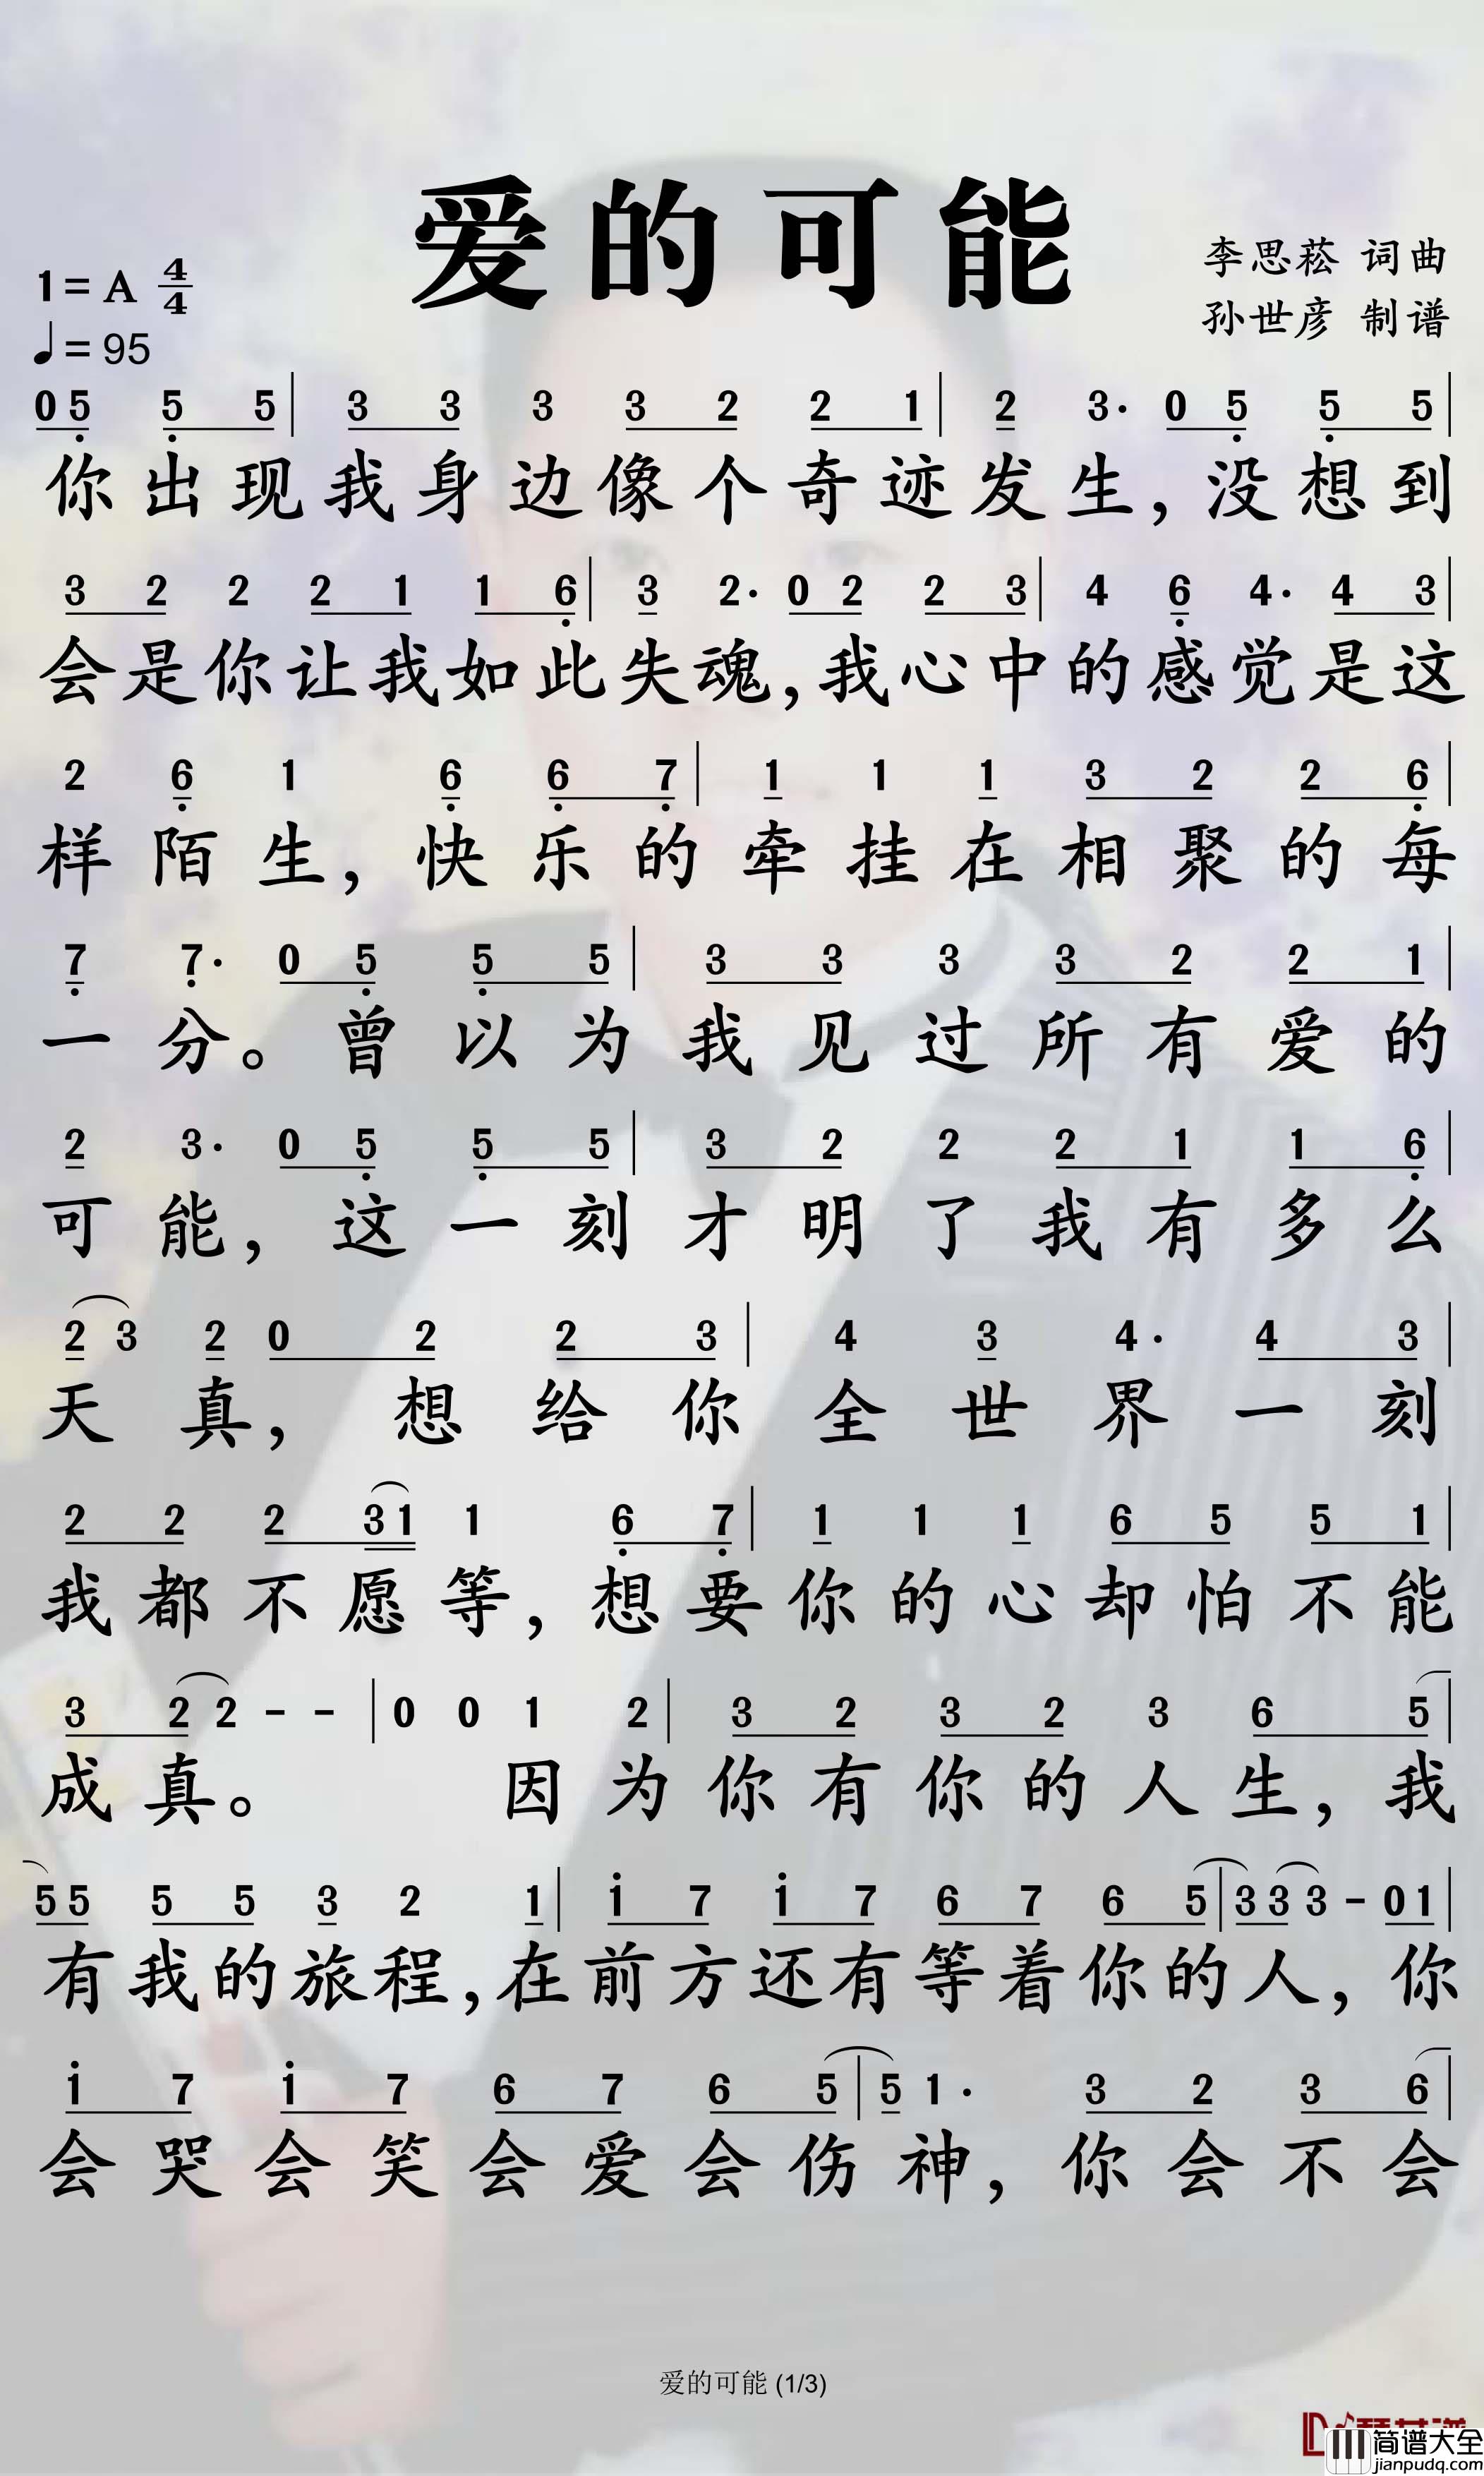 爱的可能
1=A 4/4
李思菘 词曲
♩=95
孙世彦 制谱
0 5 5 5 | 3 3 3 3 2 2 1 | 2 3· 0 5 5 5 |
你出现我身边像个奇迹发生，没想到
3 2 2 2 1 1 6 | 3 2· 0 2 2 3 | 4 6 4· 4 3 |
会是你让我如此失魂，我心中的感觉是这
2 6 1 6 6 7 | 1 1 1 3 2 2 6 |
样陌生，快乐的牵挂在相聚的每
7 7· 0 5 5 5 | 3 3 3 3 2 2 1 |
一分。曾以为我见过所有爱的
2 3· 0 5 5 5 | 3 2 2 2 1 1 6 |
可能，这一刻才明了我有多么
2 3 2 0 2 2 3 | 4 3 4· 4 3 |
天真，想给你全世界一刻
2 2 2 3 1 1 6 7 | 1 1 1 6 5 5 1 |
我都不愿等，想要你的心却怕不能
3 2 2 - - | 0 0 1 2 | 3 2 3 2 3 6 5 |
成真。因为你有你的人生，我
5 5 5 5 3 2 1 | 1 7 1 7 6 7 6 5 | 3 3 3 - 0 1 |
有我的旅程，在前方还有等着你的人，你
1 7 1 7 6 7 6 5 | 5 1· 3 2 3 6 |
会哭会笑会爱会伤神，你会不会
爱的可能 (1/3)
简谱大全
jianpudq.com